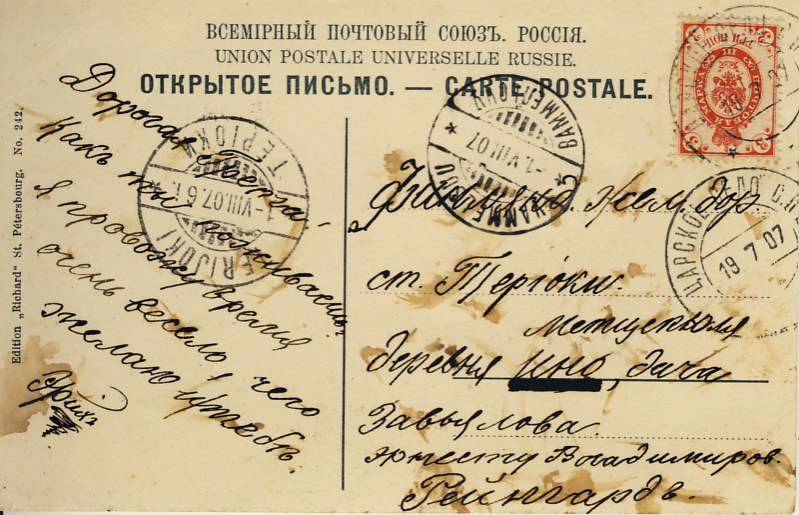 ВСЕМІРНЫЙ ПОЧТОВЫЙ СОЮЗЪ. РОССІЯ.
UNION POSTALE UNIVERSELLE RUSSIE.
ОТКРЫТОЕ ПИСЬМО. — CARTE POSTALE.
Edition „Richard" St. Pétersbourg. No. 242.
Дорогая
какъ ты поживаешь.
я провожу время
очень весело! чего
желаю и тебѣ.
Финлянд. жел. дор.
ст. Теріоки.
деревня Ино, дача
Завьялова.
Эрнесту Владимиров.
Рейнгардъ.
TERIJOKI
ТЕРІОКИ
1-VIII.07. 6
VAMMELJOKI
-1.VIII.07
ЦАРСКОЕ СЕЛО
19 7 07